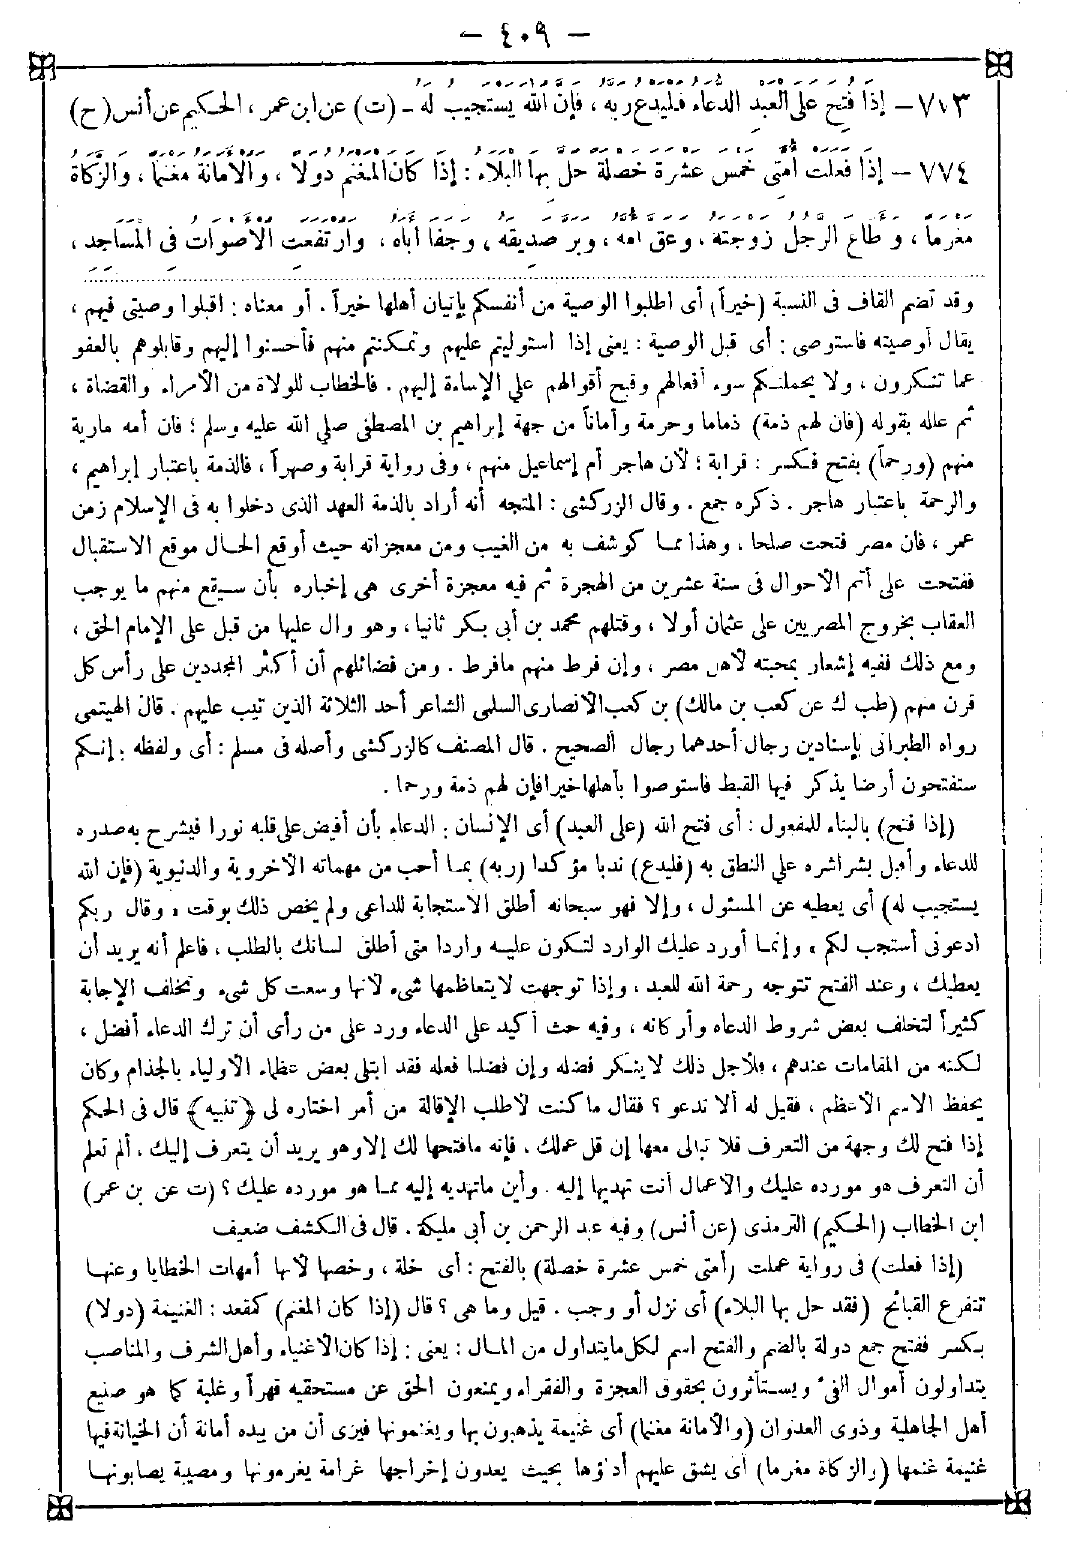 – ٤٠٩ –
٧٧٣ – إِذَا فُتِحَ عَلَى الْعَبْدِ الدُّعَاءُ فَلْيَدْعُ رَبَّهُ ، فَإِنَّ اللهَ يَسْتَجِيبُ لَهُ - (ت) عن ابن عمر ، الحكيم عن أنس (ح)
٧٧٤ – إِذَا فَعَلَتْ أُمَّتِي خَمْسَ عَشْرَةَ خَصْلَةً حَلَّ بِهَا الْبَلَاءُ : إِذَا كَانَ الْمَغْنَمُ دُوَلًا ، وَالْأَمَانَةُ مَغْنَمًا ، وَالزَّكَاةُ
مَغْرَمًا ، وَأَطَاعَ الرَّجُلُ زَوْجَتَهُ ، وَعَقَّ أُمَّهُ ، وَبَرَّ صَدِيقَهُ ، وَجَفَا أَبَاهُ ، وَارْتَفَعَتِ الْأَصْوَاتُ فِي الْمَسَاجِدِ ،
وقد تضم القاف فى النسبة (خيراً) أى اطلبوا الوصية من أنفسكم بإتيان أهلها خيراً . أو معناه : اقبلوا وصيتى فيهم ،
يقال أوصيته فاستوصى : أى قبل الوصية : يعنى إذا استوليتم عليهم وتمكنتم منهم فأحسنوا إليهم وقابلوهم بالعفو
عما تنكرون ، ولا يحملنكم سوء أفعالهم وقبح أقوالهم على الإساءة إليهم . فالخطاب للولاة من الأمراء والقضاة ،
ثم علله بقوله (فان لهم ذمة) ذماما وحرمة وأماناً من جهة إبراهيم بن المصطفى صلى الله عليه وسلم ؛ فان أمه مارية
منهم (ورحماً) بفتح فكسر : قرابة ؛ لأن هاجر أم إسماعيل منهم ، وفى رواية قرابة وصهراً ، فالذمة باعتبار إبراهيم ،
والرحمة باعتبار هاجر . ذكره جمع . وقال الزركشى : المتجه أنه أراد بالذمة العهد الذى دخلوا به فى الإسلام زمن
عمر ، فان مصر فتحت صلحا ، وهذا مما كوشف به من الغيب ومن معجزاته حيث أوقع الحال موقع الاستقبال
ففتحت على أتم الأحوال فى سنة عشرين من الهجرة ثم فيه معجزة أخرى هى إخباره بأن سيقع منهم ما يوجب
العقاب بخروج المصريين على عثمان أولا ، وقتلهم محمد بن أبى بكر ثانيا ، وهو وال عليها من قبل على الإمام الحق ،
ومع ذلك ففيه إشعار بمحبته لأهل مصر ، وإن فرط منهم مافرط . ومن فضائلهم أن أكثر المجددين على رأس كل
قرن منهم (طب ك عن كعب بن مالك) بن كعب الانصارى السلمى الشاعر أحد الثلاثة الذين تيب عليهم . قال الهيتمى
رواه الطبرانى بإسنادين رجال أحدهما رجال الصحيح . قال المصنف كالزركشى وأصله فى مسلم : أى ولفظه : إنكم
ستفتحون أرضا يذكر فيها القبط فاستوصوا بأهلها خيرا فإن لهم ذمة ورحما .
(إذا فتح) بالبناء للمفعول : أى فتح الله (على العبد) أى الإنسان : الدعاء بأن أفيض على قلبه نورا فيشرح به صدره
للدعاء وأقبل بشراشره على النطق به (فليدع) ندبا مؤكدا (ربه) بما أحب من مهماته الأخروية والدنيوية (فإن الله
يستجيب له) أى يعطيه عن المسئول ، وإلا فهو سبحانه أطلق الاستجابة للداعى ولم يخص ذلك بوقت ، وقال ربكم
ادعونى أستجب لكم ، وإنما أورد عليك الوارد لتكون عليه واردا متى أطلق لسانك بالطلب ، فاعلم أنه يريد أن
يعطيك ، وعند الفتح تتوجه رحمة الله للعبد ، وإذا توجهت لايتعاظمها شىء لأنها وسعت كل شىء وتخلف الإجابة
كثيراً لتخلف بعض شروط الدعاء وأركانه ، وفيه حث أكيد على الدعاء ورد على من رأى أن ترك الدعاء أفضل ،
لكنه من المقامات عندهم ، فلأجل ذلك لاينكر فضله وإن فضلنا فعله فقد ابتلى بعض عظماء الأولياء بالجذام وكان
يحفظ الاسم الأعظم ، فقيل له ألا تدعو ؟ فقال ما كنت لأطلب الإقالة من أمر اختاره لى ﴿تنبيه﴾ قال فى الحكم
إذا فتح لك وجهة من التعرف فلا تبالى معها إن قل عملك ، فإنه مافتحها لك إلا وهو يريد أن يتعرف إليك ، ألم تعلم
أن التعرف هو مورده عليك والأعمال أنت تهديها إليه . وأين ماتهديه إليه مما هو مورده عليك ؟ (ت عن بن عمر)
ابن الخطاب (الحكيم) الترمذى (عن أنس) وفيه عبد الرحمن بن أبى مليكة . قال فى الكشف ضعيف
(إذا فعلت) فى رواية عملت (أمتى خمس عشرة خصلة) بالفتح : أى خلة ، وخصها لأنها أمهات الخطايا وعنها
تتفرع القبائح (فقد حل بها البلاء) أى نزل أو وجب . قيل وما هى ؟ قال (إذا كان المغنم) كمقعد : الغنيمة (دولا)
بكسر ففتح جمع دولة بالضم والفتح اسم لكل مايتداول من المال : يعنى : إذا كان الأغنياء وأهل الشرف والمناصب
يتداولون أموال الفىء ويستأثرون بحقوق العجزة والفقراء ويمنعون الحق عن مستحقيه قهراً وغلبة كما هو صنيع
أهل الجاهلية وذوى العدوان (والأمانة مغنما) أى غنيمة يذهبون بها ويغنمونها فيرى أن من بيده أمانة أن الخيانة فيها
غنيمة غنمها (والزكاة مغرما) أى يشق عليهم أداؤها بحيث يعدون إخراجها غرامة يغرمونها ومصيبة يصابونها